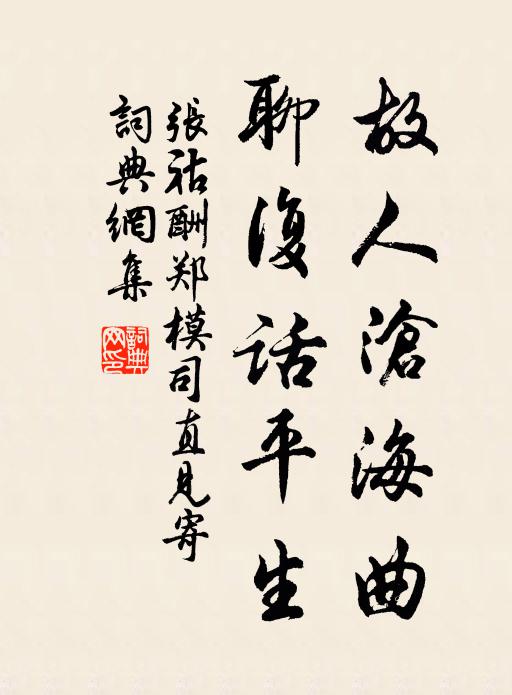 故人滄海曲
聊復話平生
張祜酬郑模司直見寄
詞典網集
詞典網印